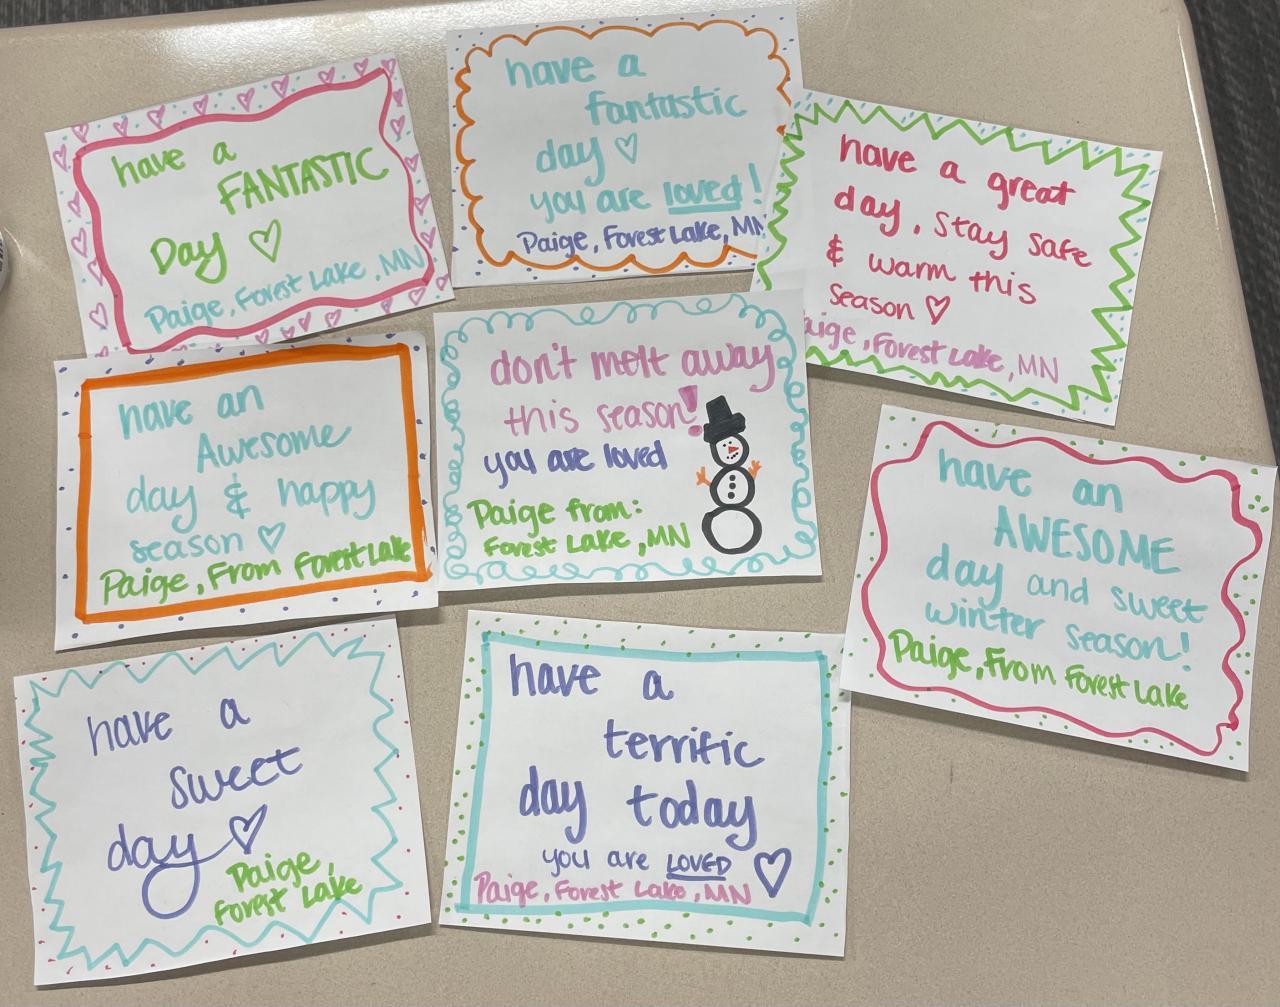 have a
FANTASTIC
Day ♡
Paige, Forest Lake, MN
have a
fantastic
day ♡
you are loved!
Paige, Forest Lake, MN
have a great
day, stay safe
& warm this
season ♡
aige, Forest Lake, MN
have an
Awesome
day & happy
season ♡
Paige, From Forest Lake
don't melt away
this season!
you are loved
Paige from:
Forest Lake, MN
have an
AWESOME
day and sweet
winter season!
Paige, From Forest Lake
have a
sweet
day ♡
Paige,
Forest Lake
have a
terrific
day today
you are LOVED ♡
Paige, Forest Lake, MN